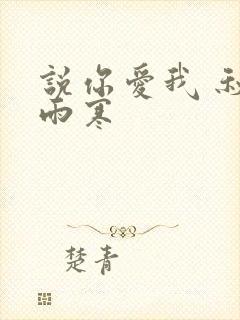 說你愛我
雨寒
楚青